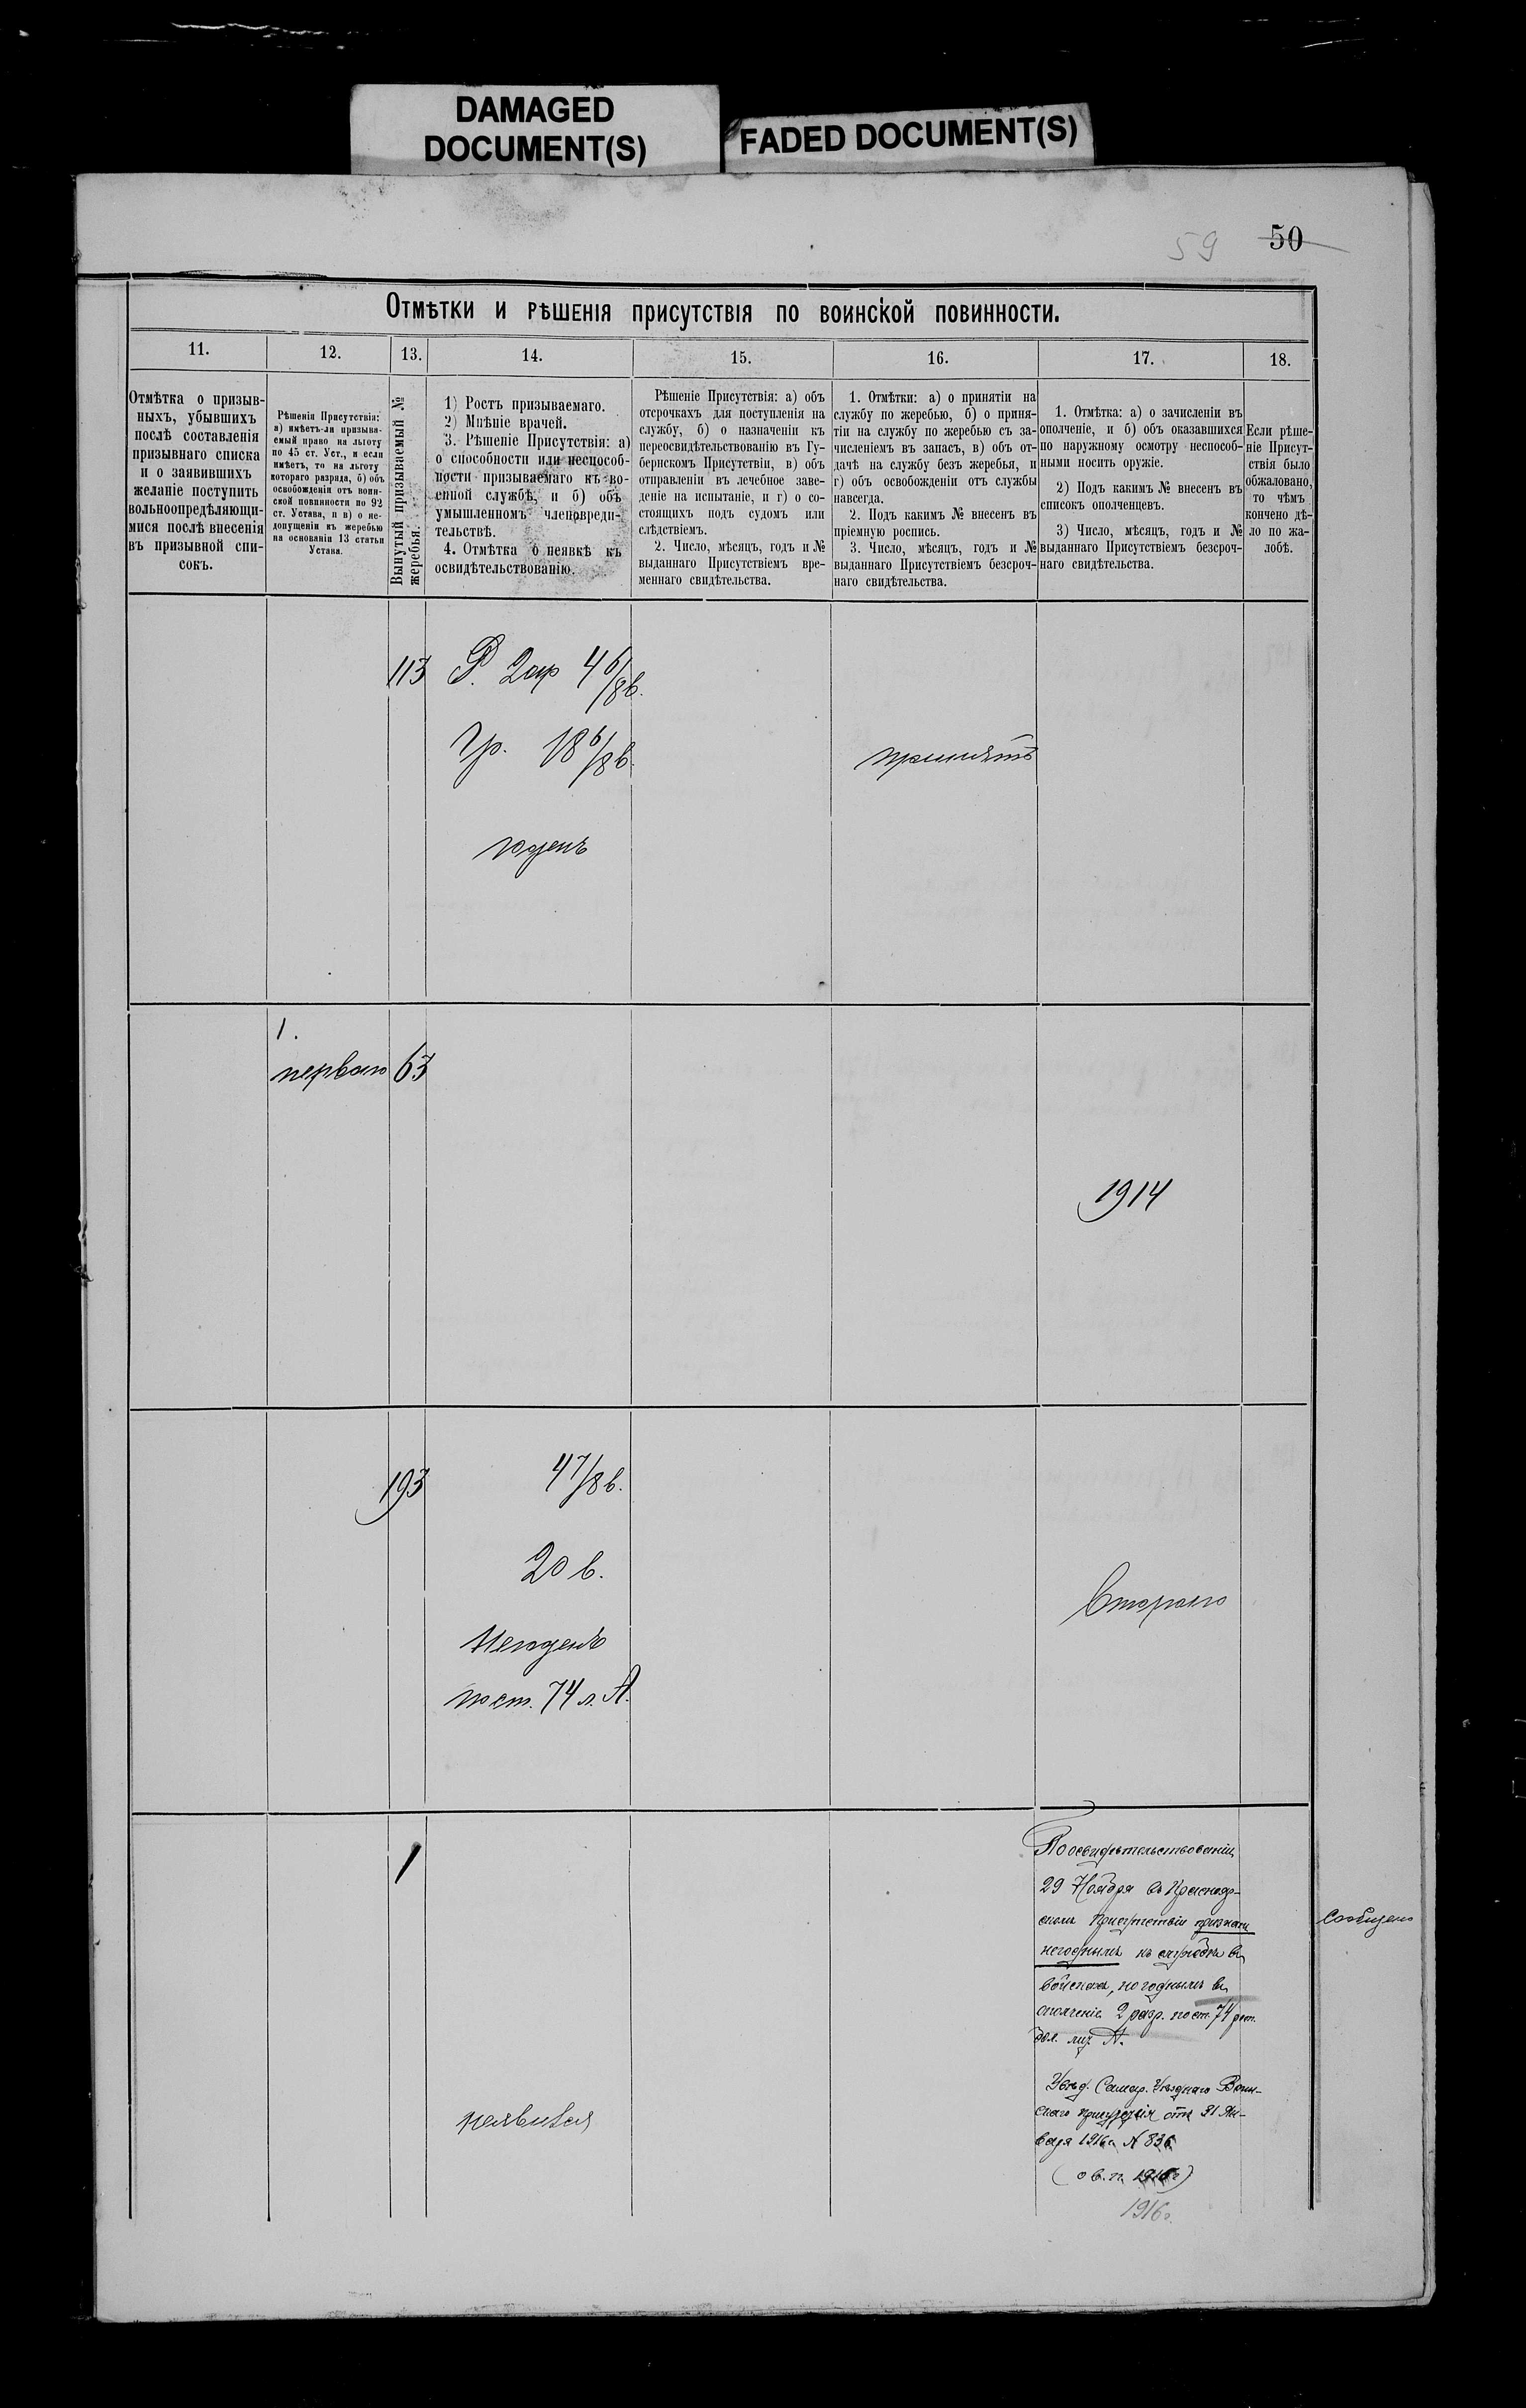 DAMAGED
DOCUMENT(S)
FADED DOCUMENT(S)
59 50
Отмѣтки и рѣшенія присутствія по воинской повинности.
11. 12. 13. 14. 15. 16. 17. 18.
Отмѣтка о призыв-
ныхъ, убывшихъ
послѣ составленія
призывнаго списка
и о заявившихъ
желаніе поступить
вольноопредѣляющи-
мися послѣ внесенія
въ призывной спи-
сокъ.
Рѣшенія Присутствія:
а) имѣетъ-ли призыва-
емый право на льготу
по 45 ст. Уст., и если
имѣетъ, то на льготу
котораго разряда, б) объ
освобожденіи отъ воин-
ской повинности по 92
ст. Устава, и в) о не-
допущеніи къ жеребью
на основаніи 13 статьи
Устава.
Вынутый призываемый №
жеребья.
1) Ростъ призываемаго.
2) Мнѣніе врачей.
3. Рѣшеніе Присутствія: а)
о способности или неспособ-
ности призываемаго къ во-
енной службѣ, и б) объ
умышленномъ членовреди-
тельствѣ.
4. Отмѣтка о неявкѣ къ
освидѣтельствованію.
Рѣшеніе Присутствія: а) объ
отсрочкахъ для поступленія на
службу, б) о назначеніи къ
переосвидѣтельствованію въ Гу-
бернскомъ Присутствіи, в) объ
отправленіи въ лечебное заве-
деніе на испытаніе, и г) о со-
стоящихъ подъ судомъ или
слѣдствіемъ.
2. Число, мѣсяцъ, годъ и №
выданнаго Присутствіемъ вре-
меннаго свидѣтельства.
1. Отмѣтки: а) о принятіи на
службу по жеребью, б) о приня-
тіи на службу по жеребью съ за-
численіемъ въ запасъ, в) объ от-
дачѣ на службу безъ жеребья, и
г) объ освобожденіи отъ службы
навсегда.
2. Подъ какимъ № внесенъ въ
пріемную роспись.
3. Число, мѣсяцъ, годъ и №
выданнаго Присутствіемъ безсроч-
наго свидѣтельства.
1. Отмѣтка: а) о зачисленіи въ
ополченіе, и б) объ оказавшихся
по наружному осмотру неспособ-
ными носить оружіе.
2) Подъ какимъ № внесенъ въ
списокъ ополченцевъ.
3) Число, мѣсяцъ, годъ и №
выданнаго Присутствіемъ безсроч-
наго свидѣтельства.
Если рѣше-
ніе Присут-
ствія было
обжаловано,
то чѣмъ
кончено дѣ-
ло по жа-
лобѣ.
113 Р. 2ар 4 6/8 в.
Гр. 18 6/8 в.
принятъ
годенъ
1.
перваго 63
1914
193 4 7/8 в.
20 в.
Втораго
Негоденъ
по ст. 74 л. А.
1
По освидѣтельствованіи
29 Ноября въ Краснояр-
скомъ Присутствіи признанъ
негоднымъ къ службѣ въ
войскахъ, но годнымъ въ
ополченіе 2 разр. по ст. 74
лит. А.
Увѣд. Самар. Уѣзднаго Воин-
скаго Присутствія отъ 21 Ян-
варя 1916г. № 836
1916г.
Сообщено
неявился